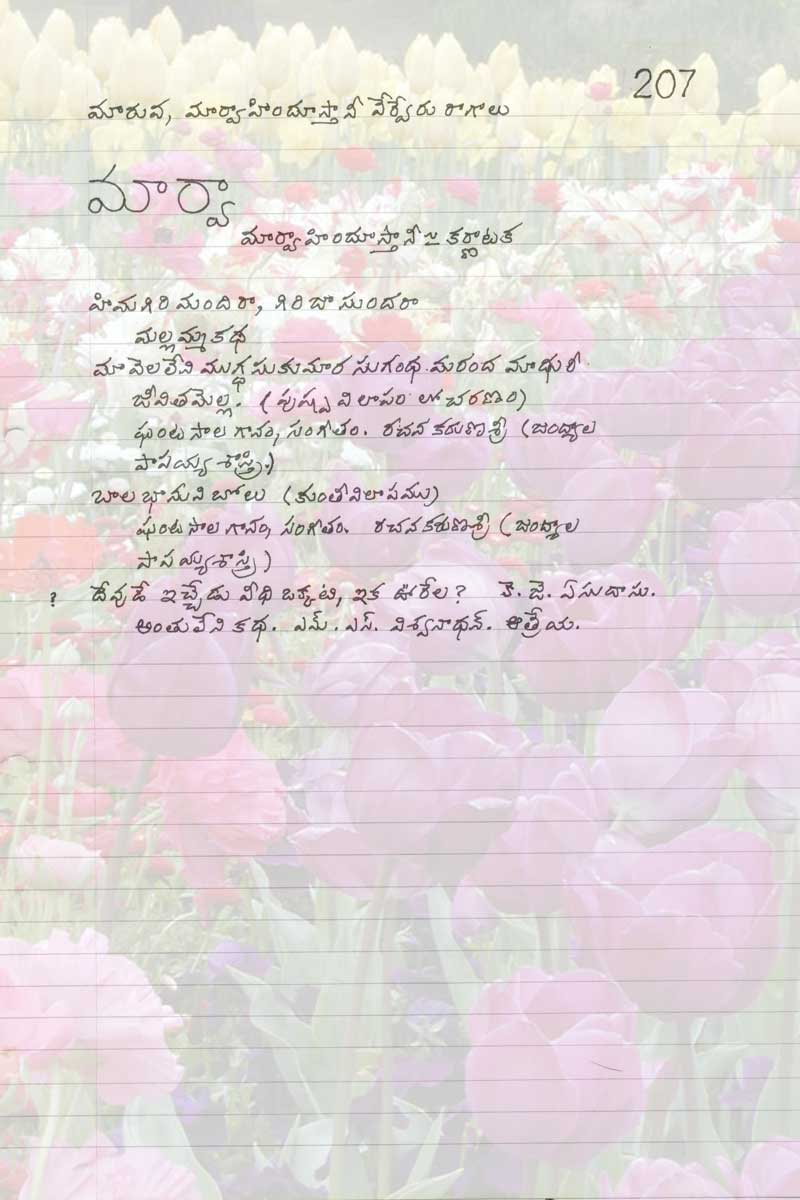 207
మారువ, మార్వాహిందూస్తానీ వేర్వేరు రాగాలు
మార్వా
మార్వా హిందూస్తానీ ౼ కర్ణాటక
హిమగిరి మందిరా, గిరిజా సుందరా
మల్లమ్మకథ
మా వెలలేని ముగ్ధసుకుమార సుగంధ మరంద మాధురీ
జీవితమెల్ల. (పుష్ప విలాపం లో చరణం)
ఘంటసాల గానం, సంగీతం. రచన కరుణశ్రీ (జంధ్యాల
పాపయ్య శాస్త్రి.)
బాల భానుని బోలు (కుంతీవిలాపము)
ఘంటసాల గానం, సంగీతం. రచన కరుణశ్రీ (జంధ్యాల
పాపయ్యశాస్త్రి)
? దేవుడే ఇచ్చేడు వీధి ఒక్కటి, ఇక ఊరేల? కె. జె. ఏసుదాసు.
అంతులేని కథ. ఎమ్. ఎస్. విశ్వనాథన్. ఆత్రేయ.